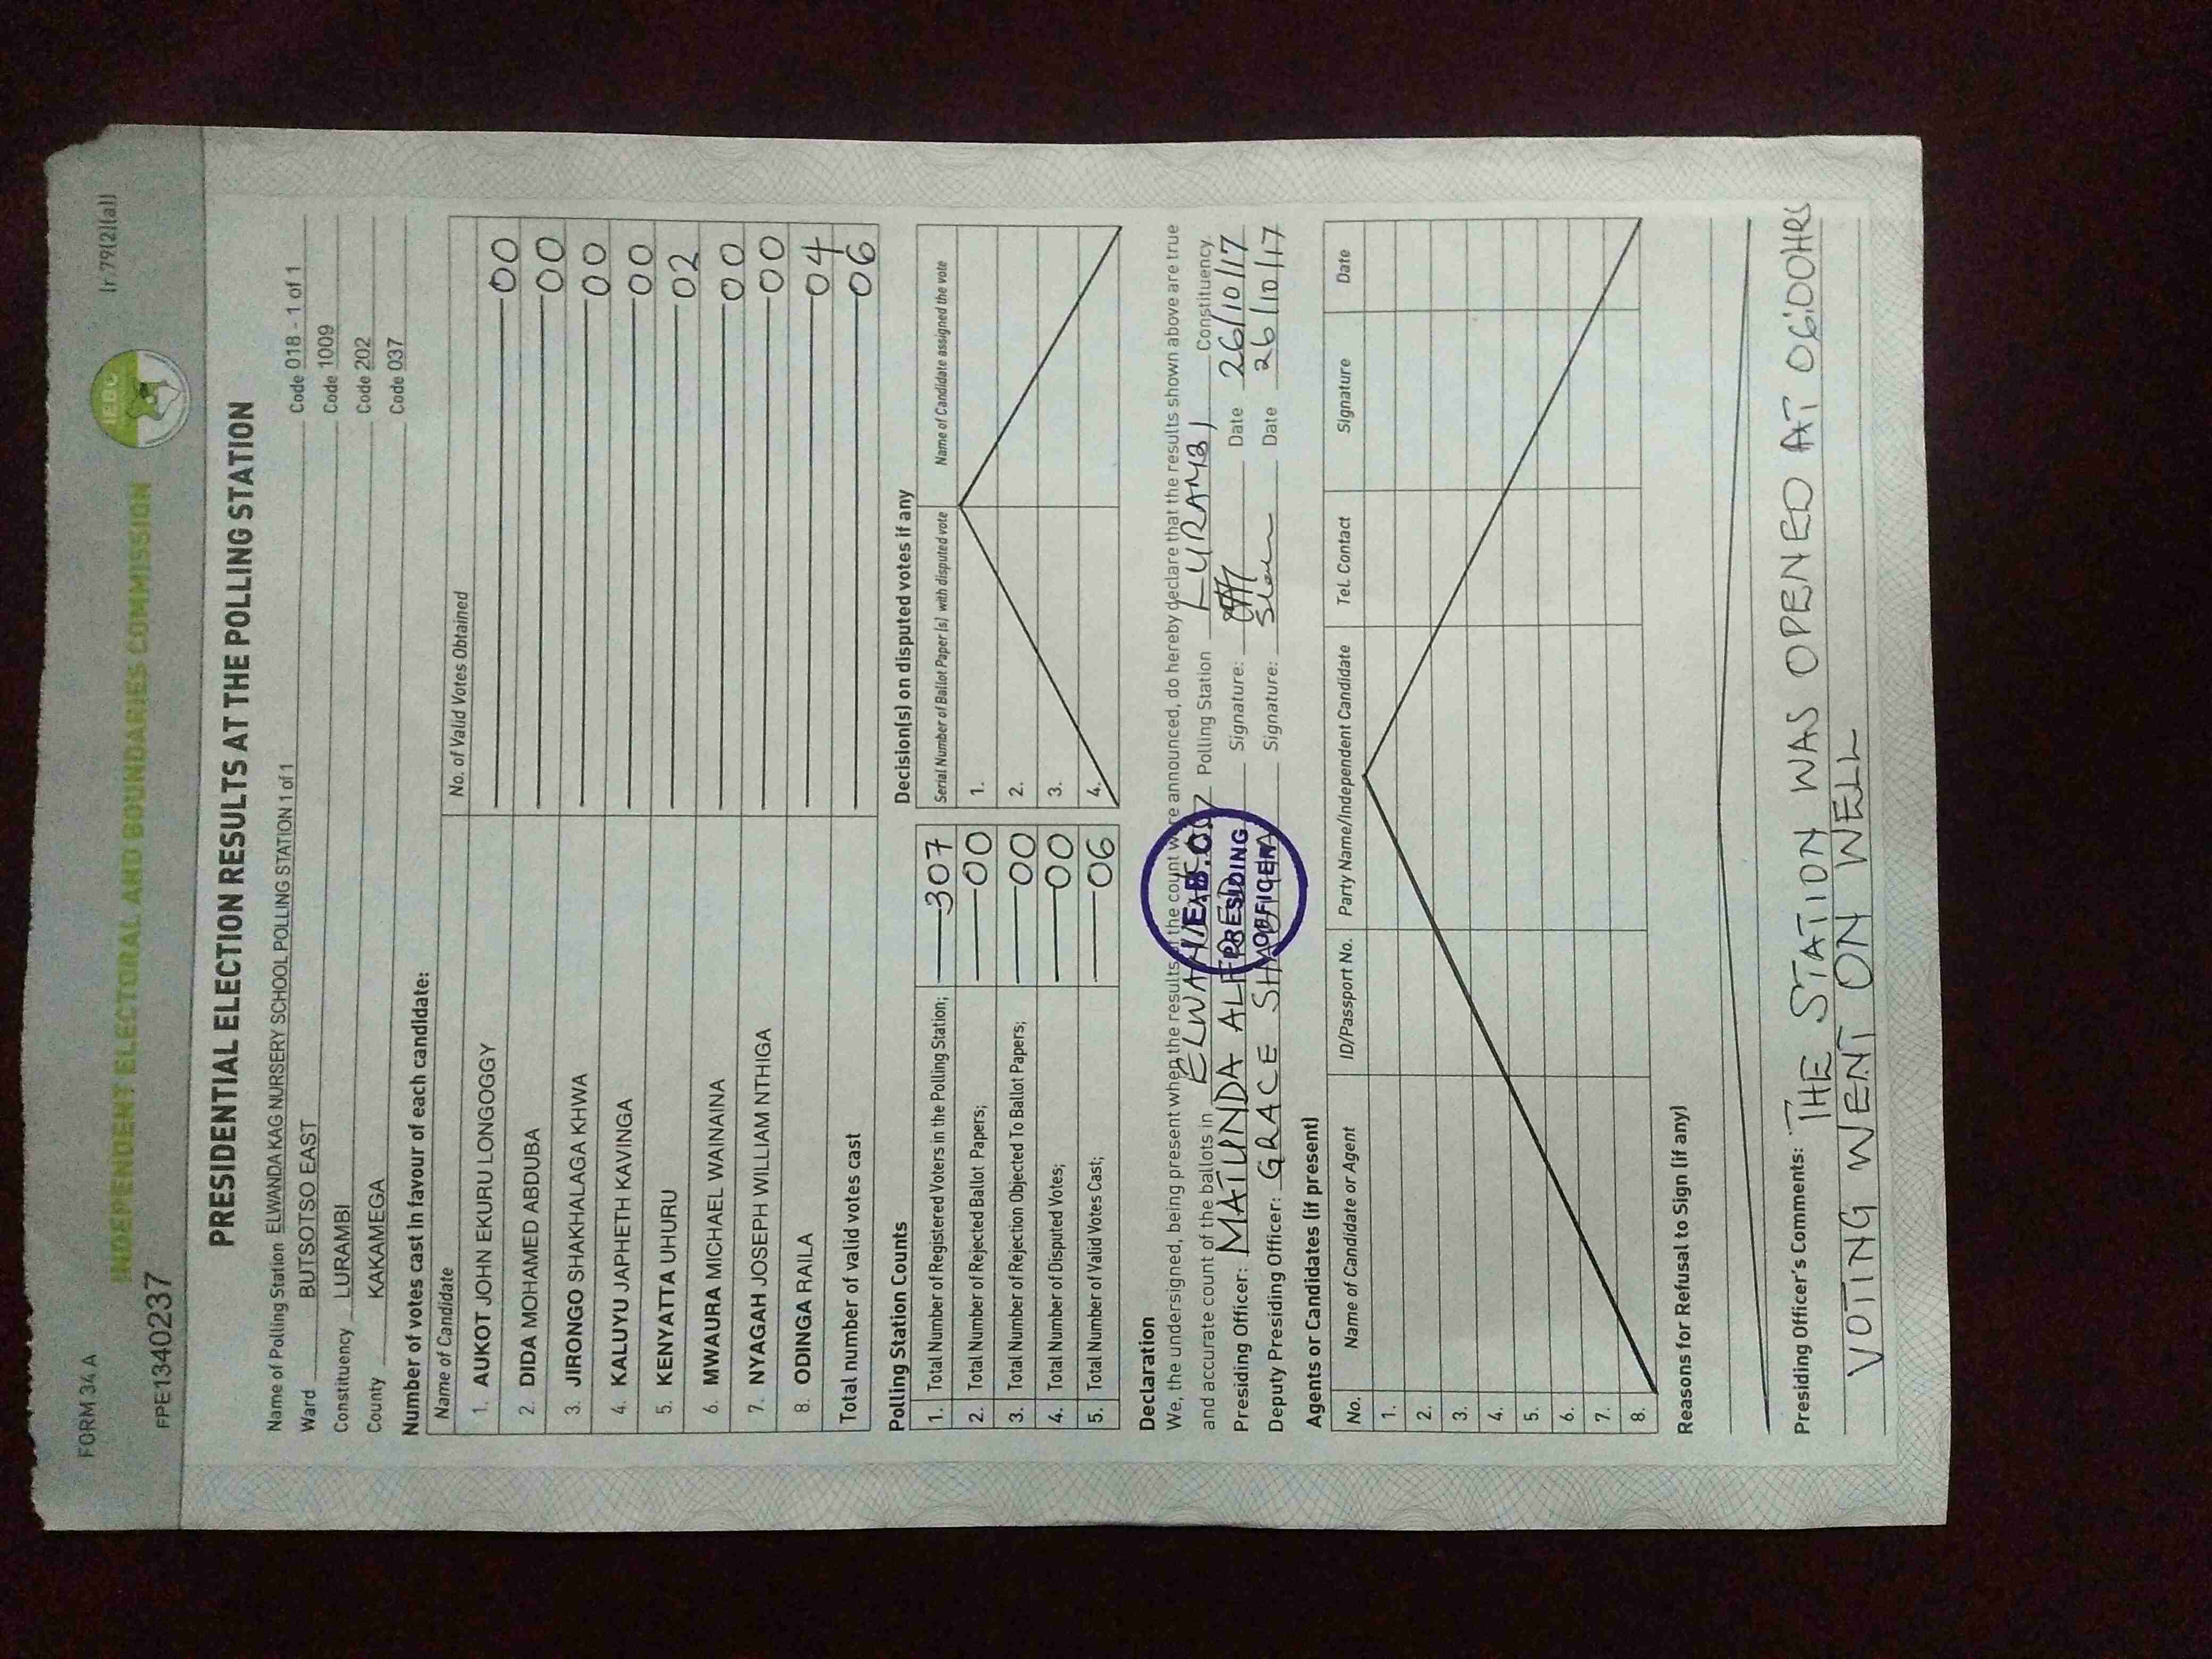 FORM 34 A
(r 79(2)(a))
INDEPENDENT ELECTORAL AND BOUNDARIES COMMISSION
IEBC
FPE1340237
PRESIDENTIAL ELECTION RESULTS AT THE POLLING STATION
Name of Polling Station ELWANDA KAG NURSERY SCHOOL POLLING STATION 1 of 1 Code 018 - 1 of 1
Ward BUTSOTSO EAST Code 1009
Constituency LURAMBI Code 202
County KAKAMEGA Code 037
Number of votes cast in favour of each candidate:
Name of Candidate No. of Valid Votes Obtained
1. AUKOT JOHN EKURU LONGOGGY 00
2. DIDA MOHAMED ABDUBA 00
3. JIRONGO SHAKHALAGA KHWA 00
4. KALUYU JAPHETH KAVINGA 00
5. KENYATTA UHURU 02
6. MWAURA MICHAEL WAINAINA 00
7. NYAGAH JOSEPH WILLIAM NTHIGA 00
8. ODINGA RAILA 04
Total number of valid votes cast 06
Polling Station Counts
1. Total Number of Registered Voters in the Polling Station; 307
2. Total Number of Rejected Ballot Papers; 00
3. Total Number of Rejection Objected To Ballot Papers; 00
4. Total Number of Disputed Votes; 00
5. Total Number of Valid Votes Cast; 06
Decision(s) on disputed votes if any
Serial Number of Ballot Paper (s) with disputed vote Name of Candidate assigned the vote
1.
2.
3.
4.
Declaration
We, the undersigned, being present when the results of the count were announced, do hereby declare that the results shown above are true
and accurate count of the ballots in Polling Station LURAMBI Constituency.
Presiding Officer: MATUNDA ALFRED Signature: Date 26/10/17
Deputy Presiding Officer: GRACE Signature: Date 26/10/17
I.E.B.C
PRESIDING
OFFICER
Agents or Candidates (if present)
No. Name of Candidate or Agent ID/Passport No. Party Name/Independent Candidate Tel. Contact Signature Date
1.
2.
3.
4.
5.
6.
7.
8.
Reasons for Refusal to Sign (if any)
Presiding Officer's Comments: THE STATION WAS OPENED AT 06:00HRS
VOTING WENT ON WELL